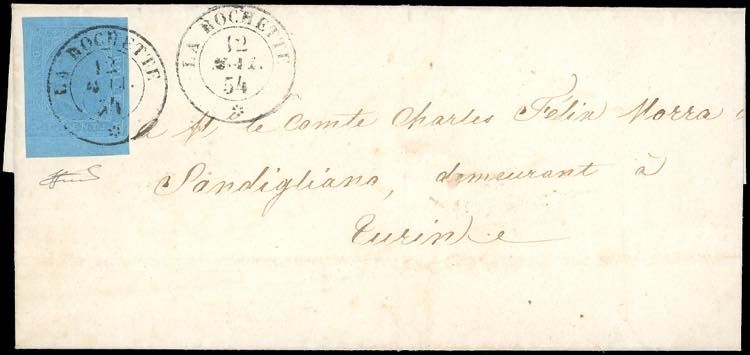 LA ROCHETTE
12
54
LA ROCHETTE
12
54
à M. le Comte Charles Felix Morra
Sandigliano, demeurant à
Turin